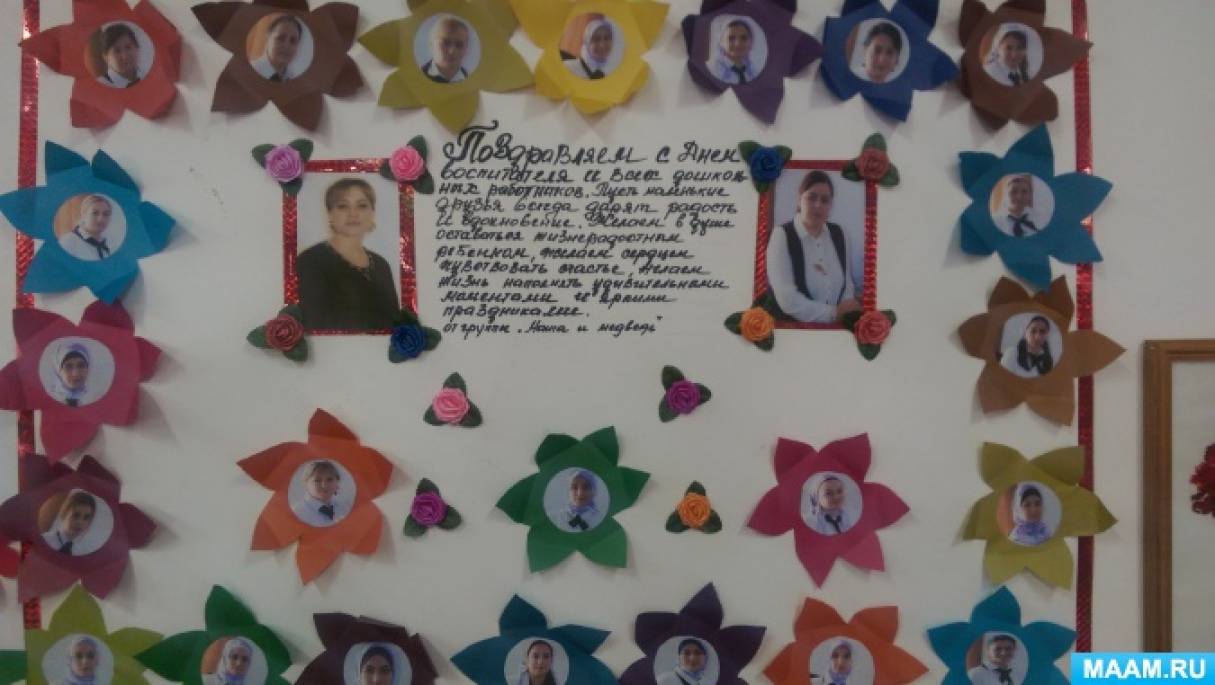 Поздравляем с Днем
воспитателя и всех дошколь
ных работников. Пусть маленькие
друзья всегда дарят радость
и вдохновение. Желаем в душе
оставаться жизнерадостным
ребенком, желаем сердцем
чувствовать счастье, желаем
жизнь наполнять удивительными
моментами и яркими
праздниками.
от группы „Маша и медведь"
MAAM.RU